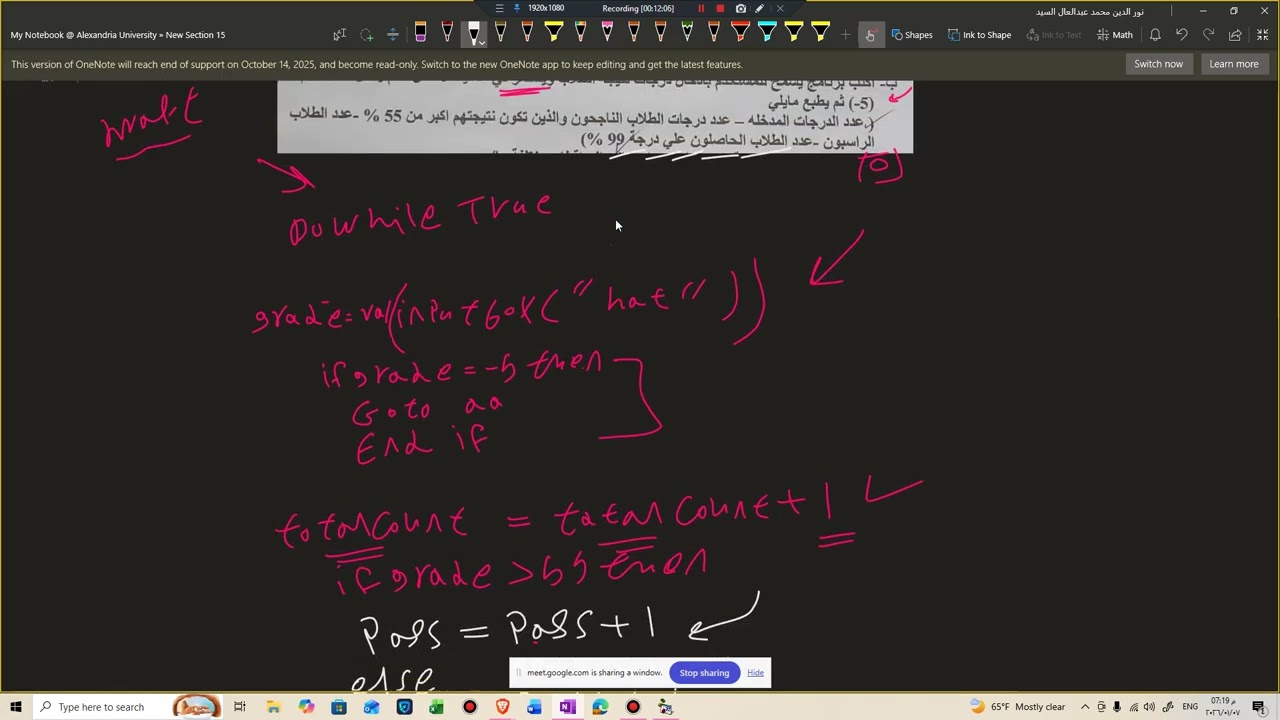 1920x1080
Recording [00:12:06]
نور الدين محمد عبدالعال السيد
My Notebook @ Alexandria University » New Section 15
Shapes
Ink to Shape
Ink to Text
Math
This version of OneNote will reach end of support on October 14, 2025, and become read-only. Switch to the new OneNote app to keep editing and get the latest features.
Switch now
Learn more
(5-) ثم يطبع مايلي
(عدد الدرجات المدخله – عدد درجات الطلاب الناجحون والذين تكون نتيجتهم اكبر من 55 % -عدد الطلاب
الراسبون -عدد الطلاب الحاصلون علي درجة 99 %)
DoWhile True
grade=val(inputbox("hat"))
if grade = -5 then
Goto aa
End if
totalCount = totalCount + 1
if grade > 55 then
Pass = Pass + 1
else
meet.google.com is sharing a window.
Stop sharing
Hide
Type here to search
65°F Mostly clear
ENG
07:19 م